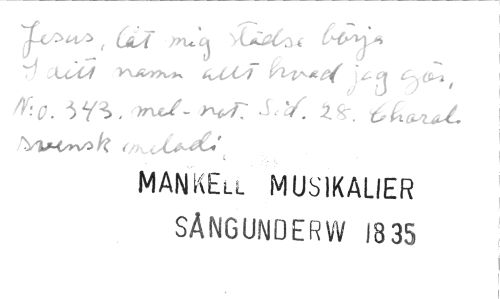 Jesus, låt mig städse börja
I ditt namn allt hvad jag gör,
N:o. 343. mel-not. Sid. 28. Choral.
svensk melodi,
MANKELL MUSIKALIER
SÅNGUNDERW 1835